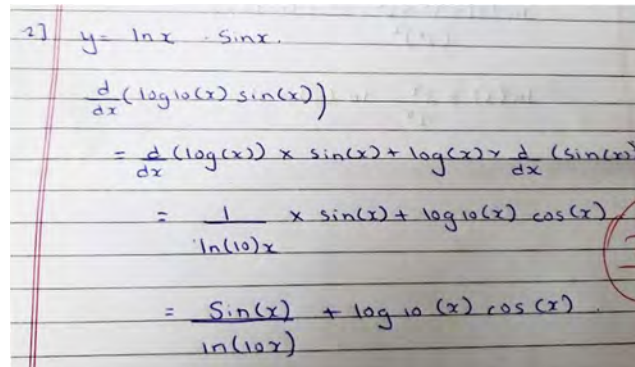 2] y= lnx . Sinx.
d/dx (log10(x) sin(x))
= d/dx (log(x)) × sin(x) + log(x) × d/dx (sin(x)
= 1/ln(10)x × sin(x) + log10(x) cos(x)
= Sin(x)/ln(10x) + log10 (x) cos(x).